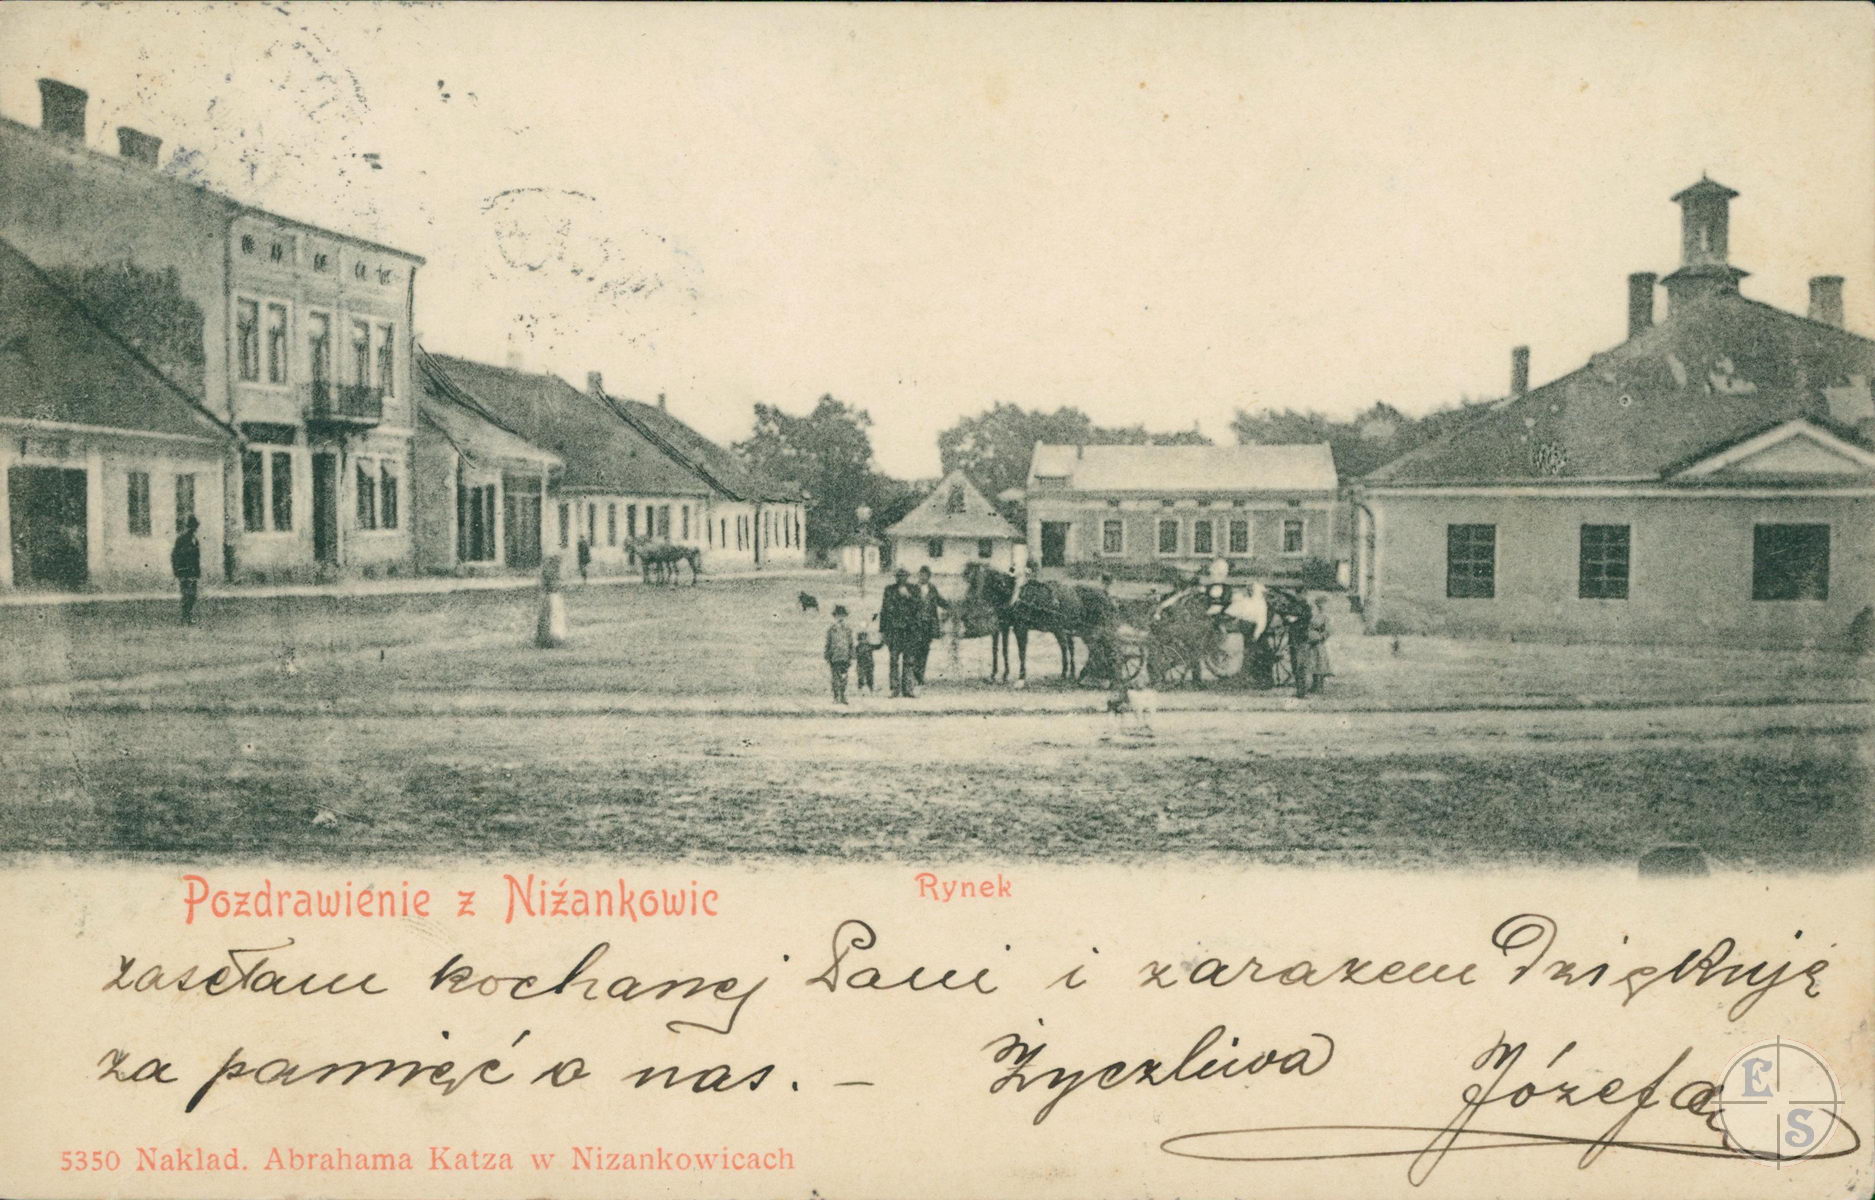 Pozdrawienie z Niźankowic
Rynek
zasełam kochanej Pani i zarazem Dziękuję
za pamięć o nas. –
Życzliwa
Józefa
5350 Nakład. Abrahama Katza w Nizankowicach
E
S